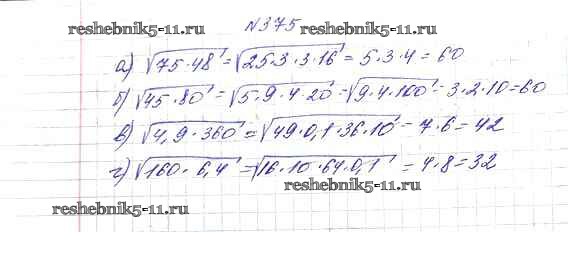 №375
reshebnik5-11.ru reshebnik5-11.ru
а) √75·48 = √25·3·3·16 = 5·3·4 = 60
б) √45·80 = √5·9·4·20 = √9·4·100 = 3·2·10 = 60
в) √4,9·360 = √49·0,1·36·10 = 7·6 = 42
г) √160·6,4 = √16·10·64·0,1 = 4·8 = 32
reshebnik5-11.ru
reshebnik5-11.ru